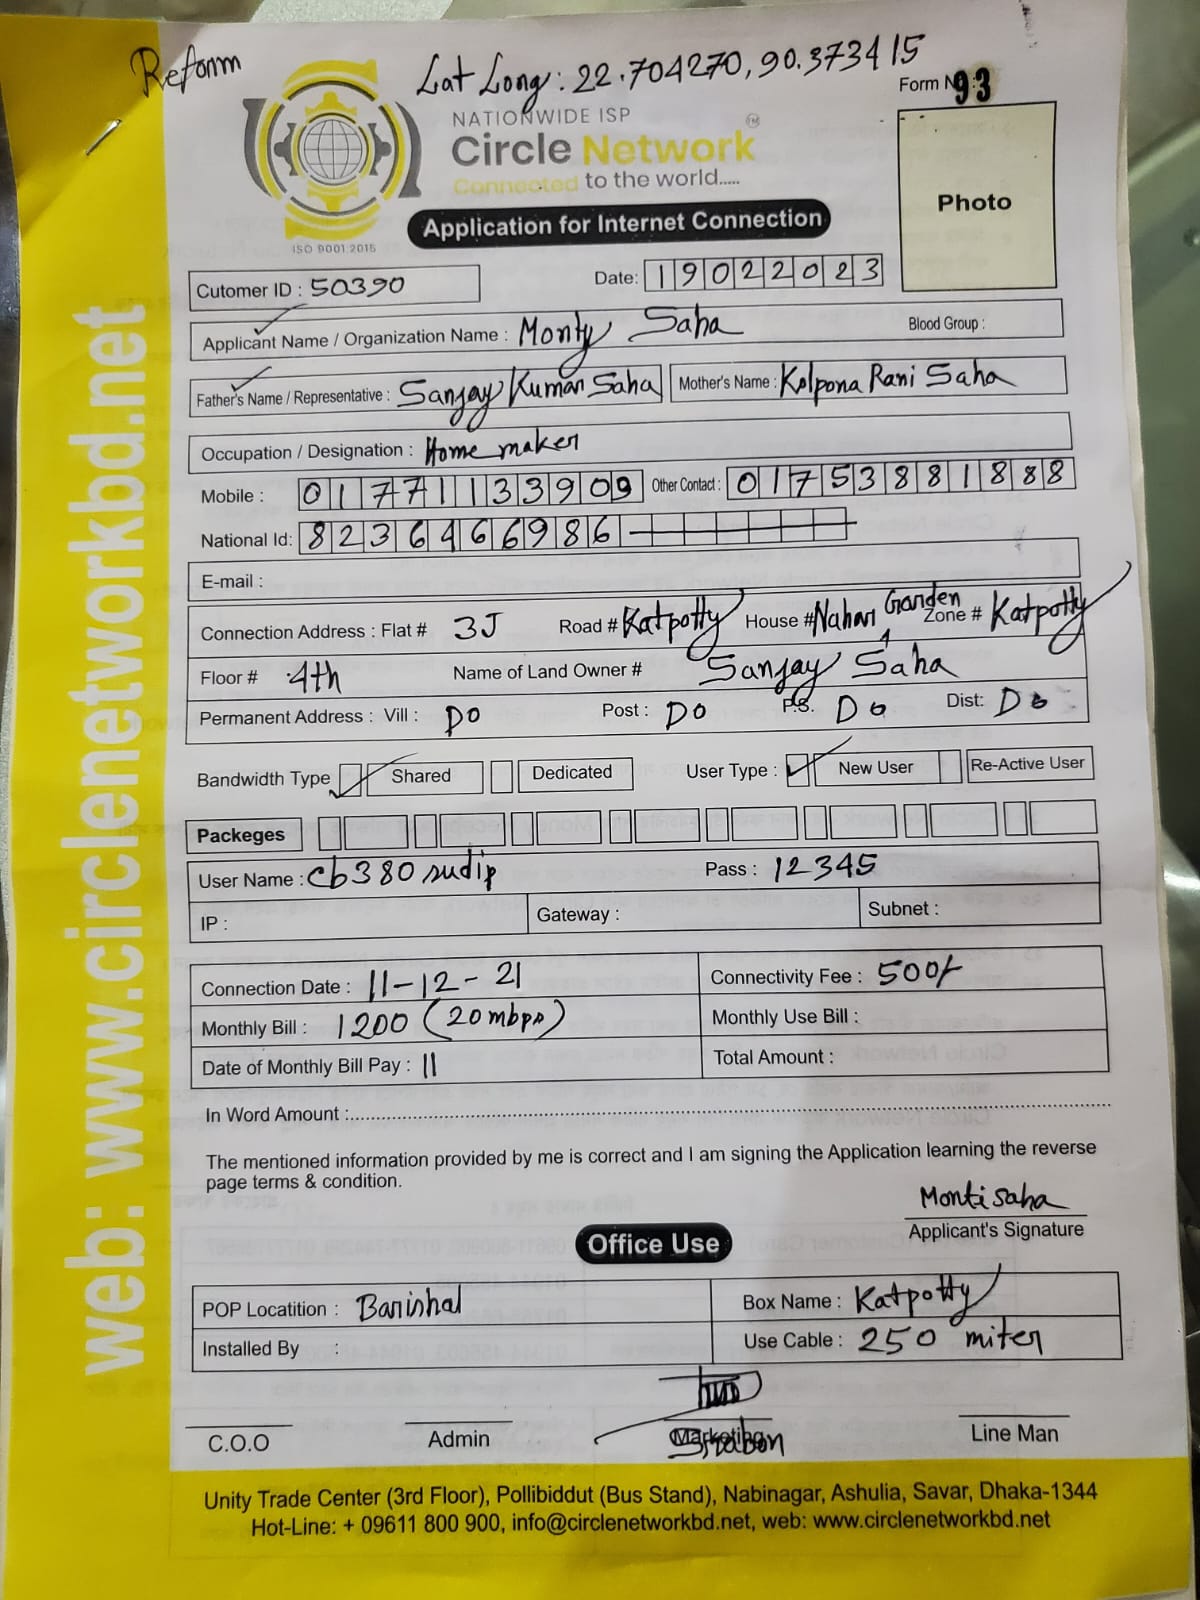 Reform
Lat Long: 22.704270, 90.373415
Form No: 93
NATIONWIDE ISP
Circle Network
TM
Connected to the world.....
ISO 9001:2015
Application for Internet Connection
Photo
Cutomer ID : 50390
Date: 19022023
Applicant Name / Organization Name : Monty Saha
Blood Group :
Father's Name / Representative : Sanjay Kumar Saha
Mother's Name : Kolpona Rani Saha
Occupation / Designation : Home maker
Mobile : 01771133909
Other Contact : 01753881888
National Id: 8236466986
E-mail :
Connection Address : Flat # 3J Road # Katpotty House # Nahar Garden Zone # Katpotty
Floor # 4th Name of Land Owner # Sanjay Saha
Permanent Address : Vill : DO Post : DO P.S. Do Dist: Do
Bandwidth Type Shared Dedicated User Type : New User Re-Active User
Packeges
User Name : cb380sudip Pass : 12345
IP : Gateway : Subnet :
Connection Date : 11-12-21
Connectivity Fee : 500/-
Monthly Bill : 1200 (20mbps)
Monthly Use Bill :
Date of Monthly Bill Pay : 11
Total Amount :
In Word Amount :
The mentioned information provided by me is correct and I am signing the Application learning the reverse
page terms & condition.
Monti saha
Applicant's Signature
Office Use
POP Locatition : Barishal
Box Name : Katpotty
Installed By :
Use Cable : 250 miter
C.O.O
Admin
Marketing
Shabon
Line Man
Unity Trade Center (3rd Floor), Pollibiddut (Bus Stand), Nabinagar, Ashulia, Savar, Dhaka-1344
Hot-Line: + 09611 800 900, info@circlenetworkbd.net, web: www.circlenetworkbd.net
web: www.circlenetworkbd.net